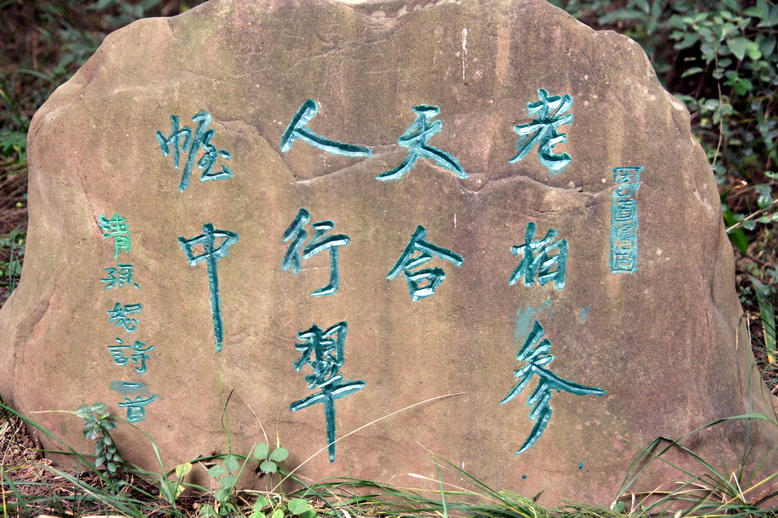 老柏參
天合
人行翠
幄中
清孫恕詩一首